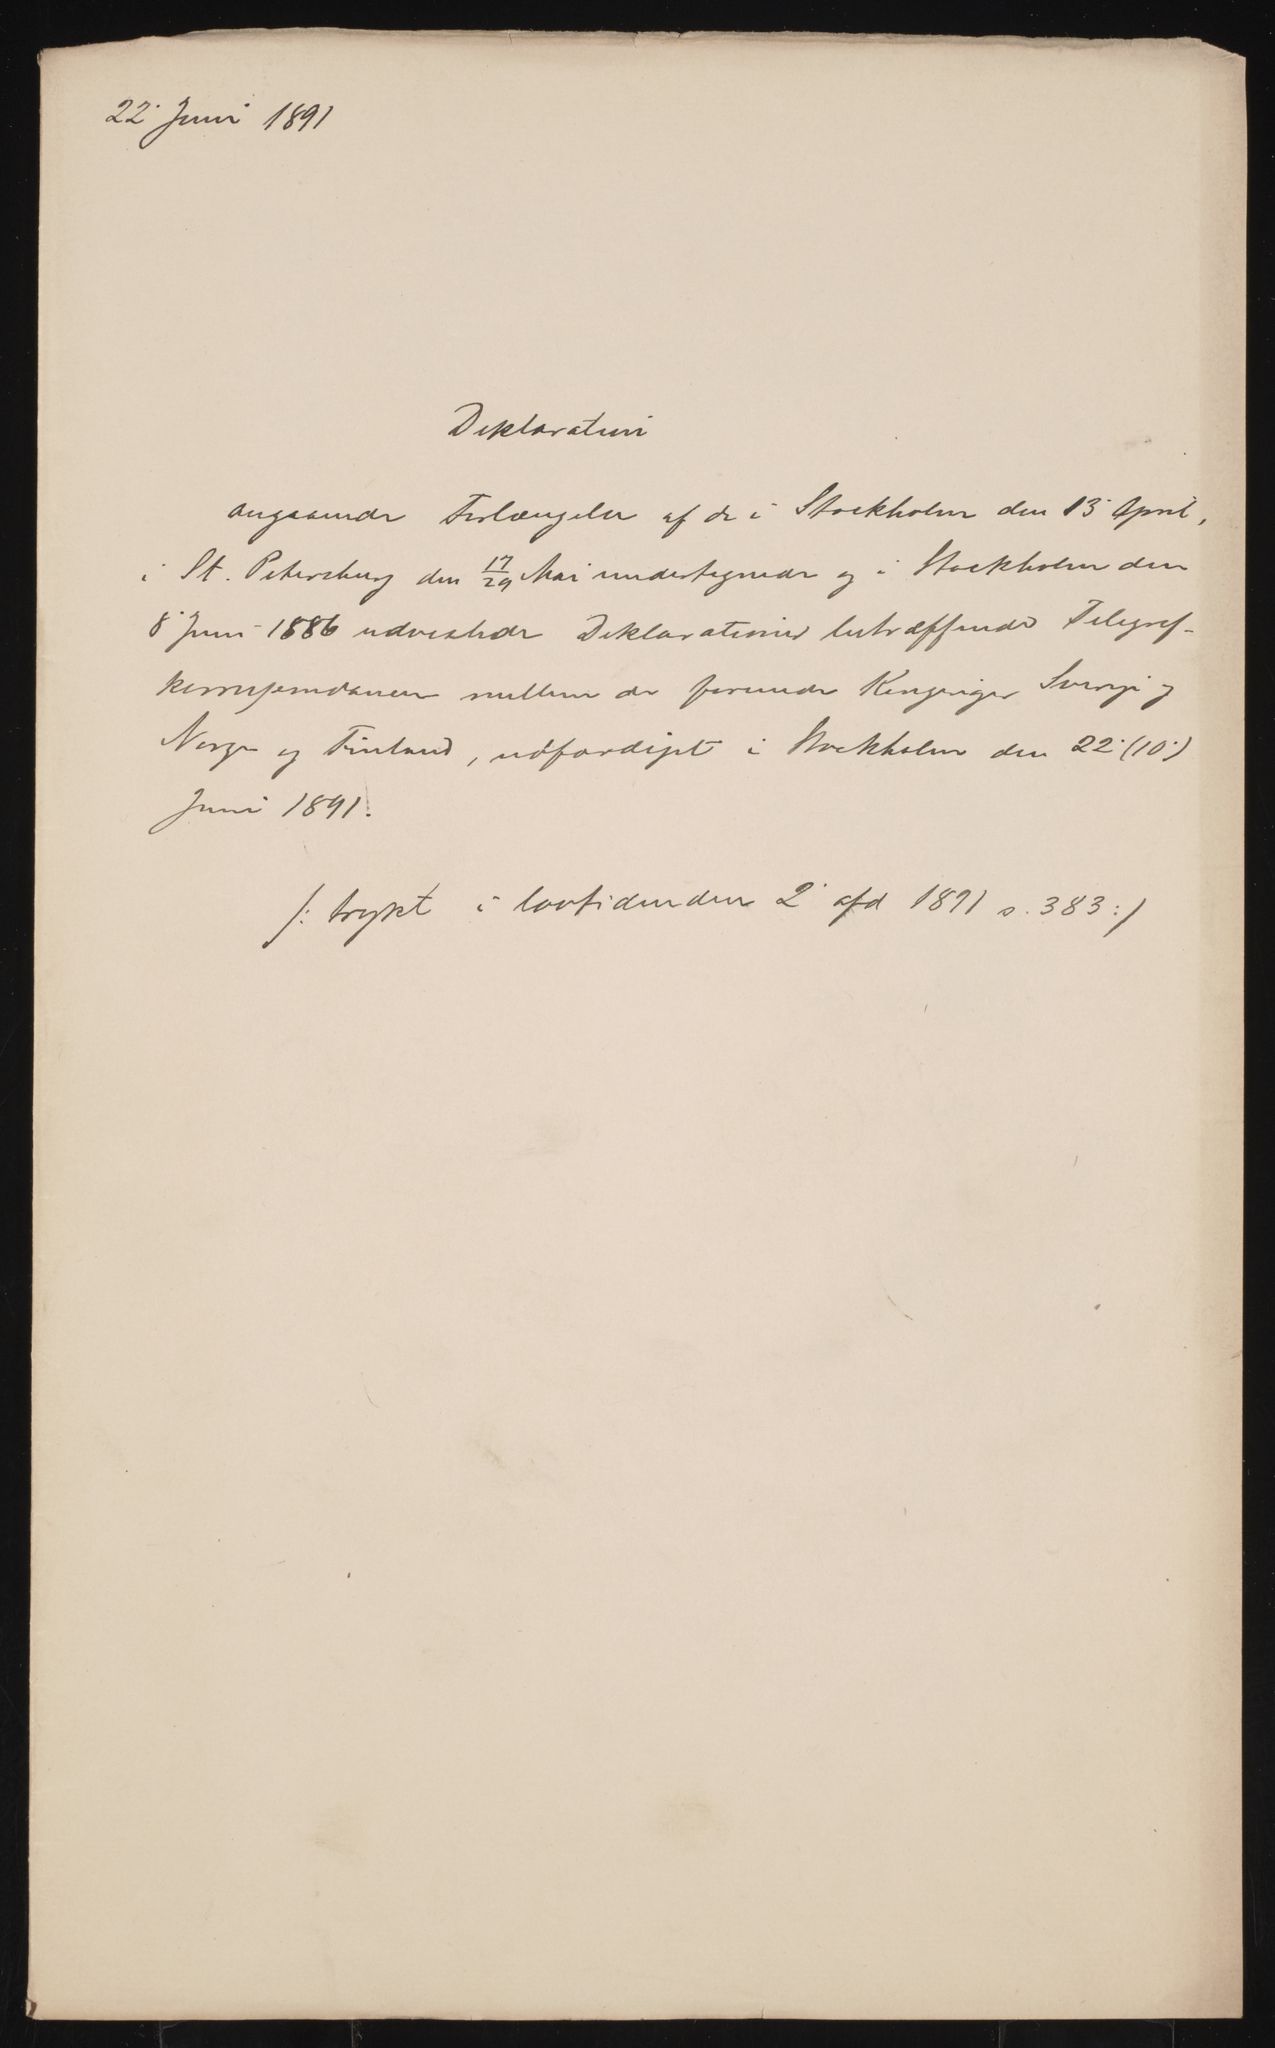 22' Juni 1891
Deklaration
angaaende Forlængelse af de i Stockholm den 13' April,
i St. Petersburg den 17/29 Mai undertegnede og i Stockholm den
8' Juni 1886 udvexlede Deklarationer betræffende Telegraf-
korrespondancen mellem de forenede Kongeriger Sverige og
Norge og Finland, udfærdiget i Stockholm den 22' (10')
Juni 1891.
/: trykt i lovtidenden 2' afd 1891 s. 383 :/